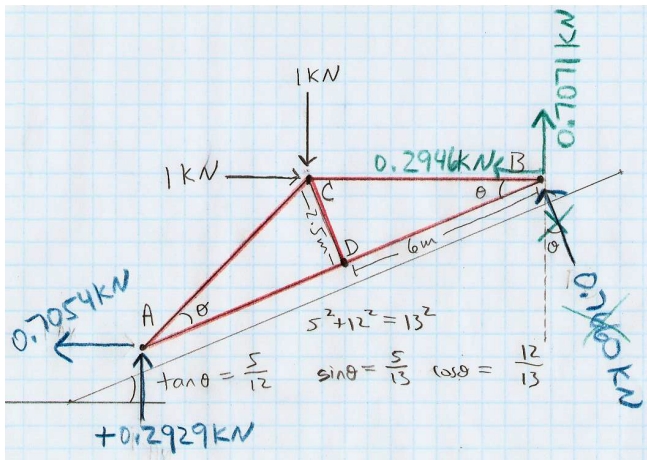 1KN
0.7071KN
1KN
0.2946KN
B
C
θ
2.5m
D
6m
θ
A
θ
0.7054KN
5²+12²=13²
tanθ = 5/12 sinθ = 5/13 cosθ = 12/13
+0.2929KN